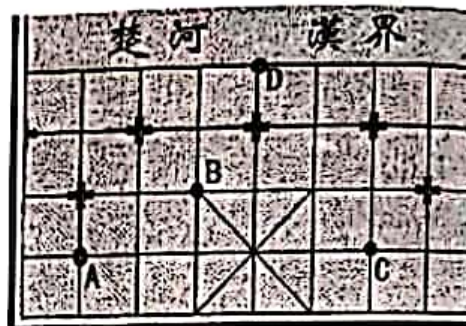 楚河 漢界
D
B
A
C